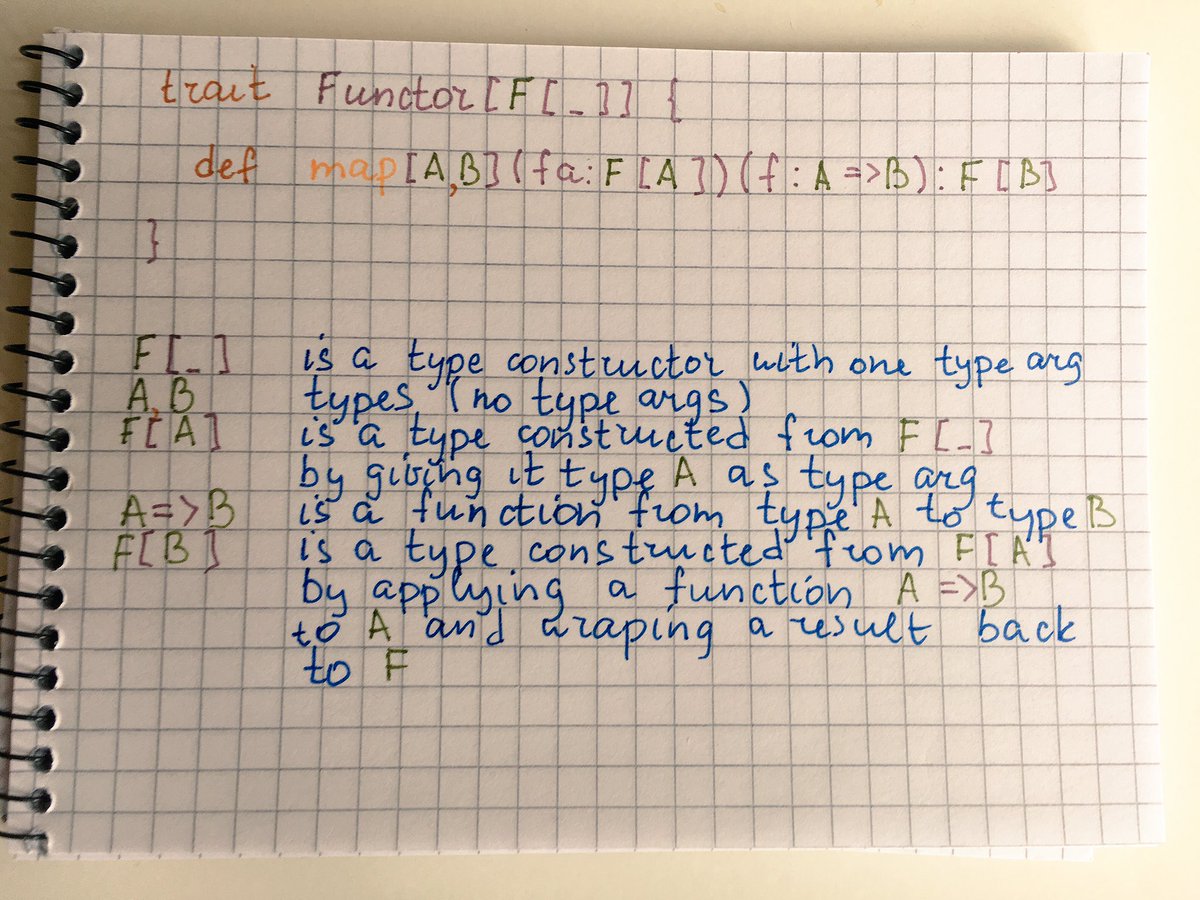 trait Functor[F[_]] {
def map[A,B](fa:F[A])(f:A=>B):F[B]
}
F[_] is a type constructor with one type arg
A,B types (no type args)
F[A] is a type constructed from F[_]
by giving it type A as type arg
A=>B is a function from type A to type B
F[B] is a type constructed from F[A]
by applying a function A=>B
to A and wraping a result back
to F